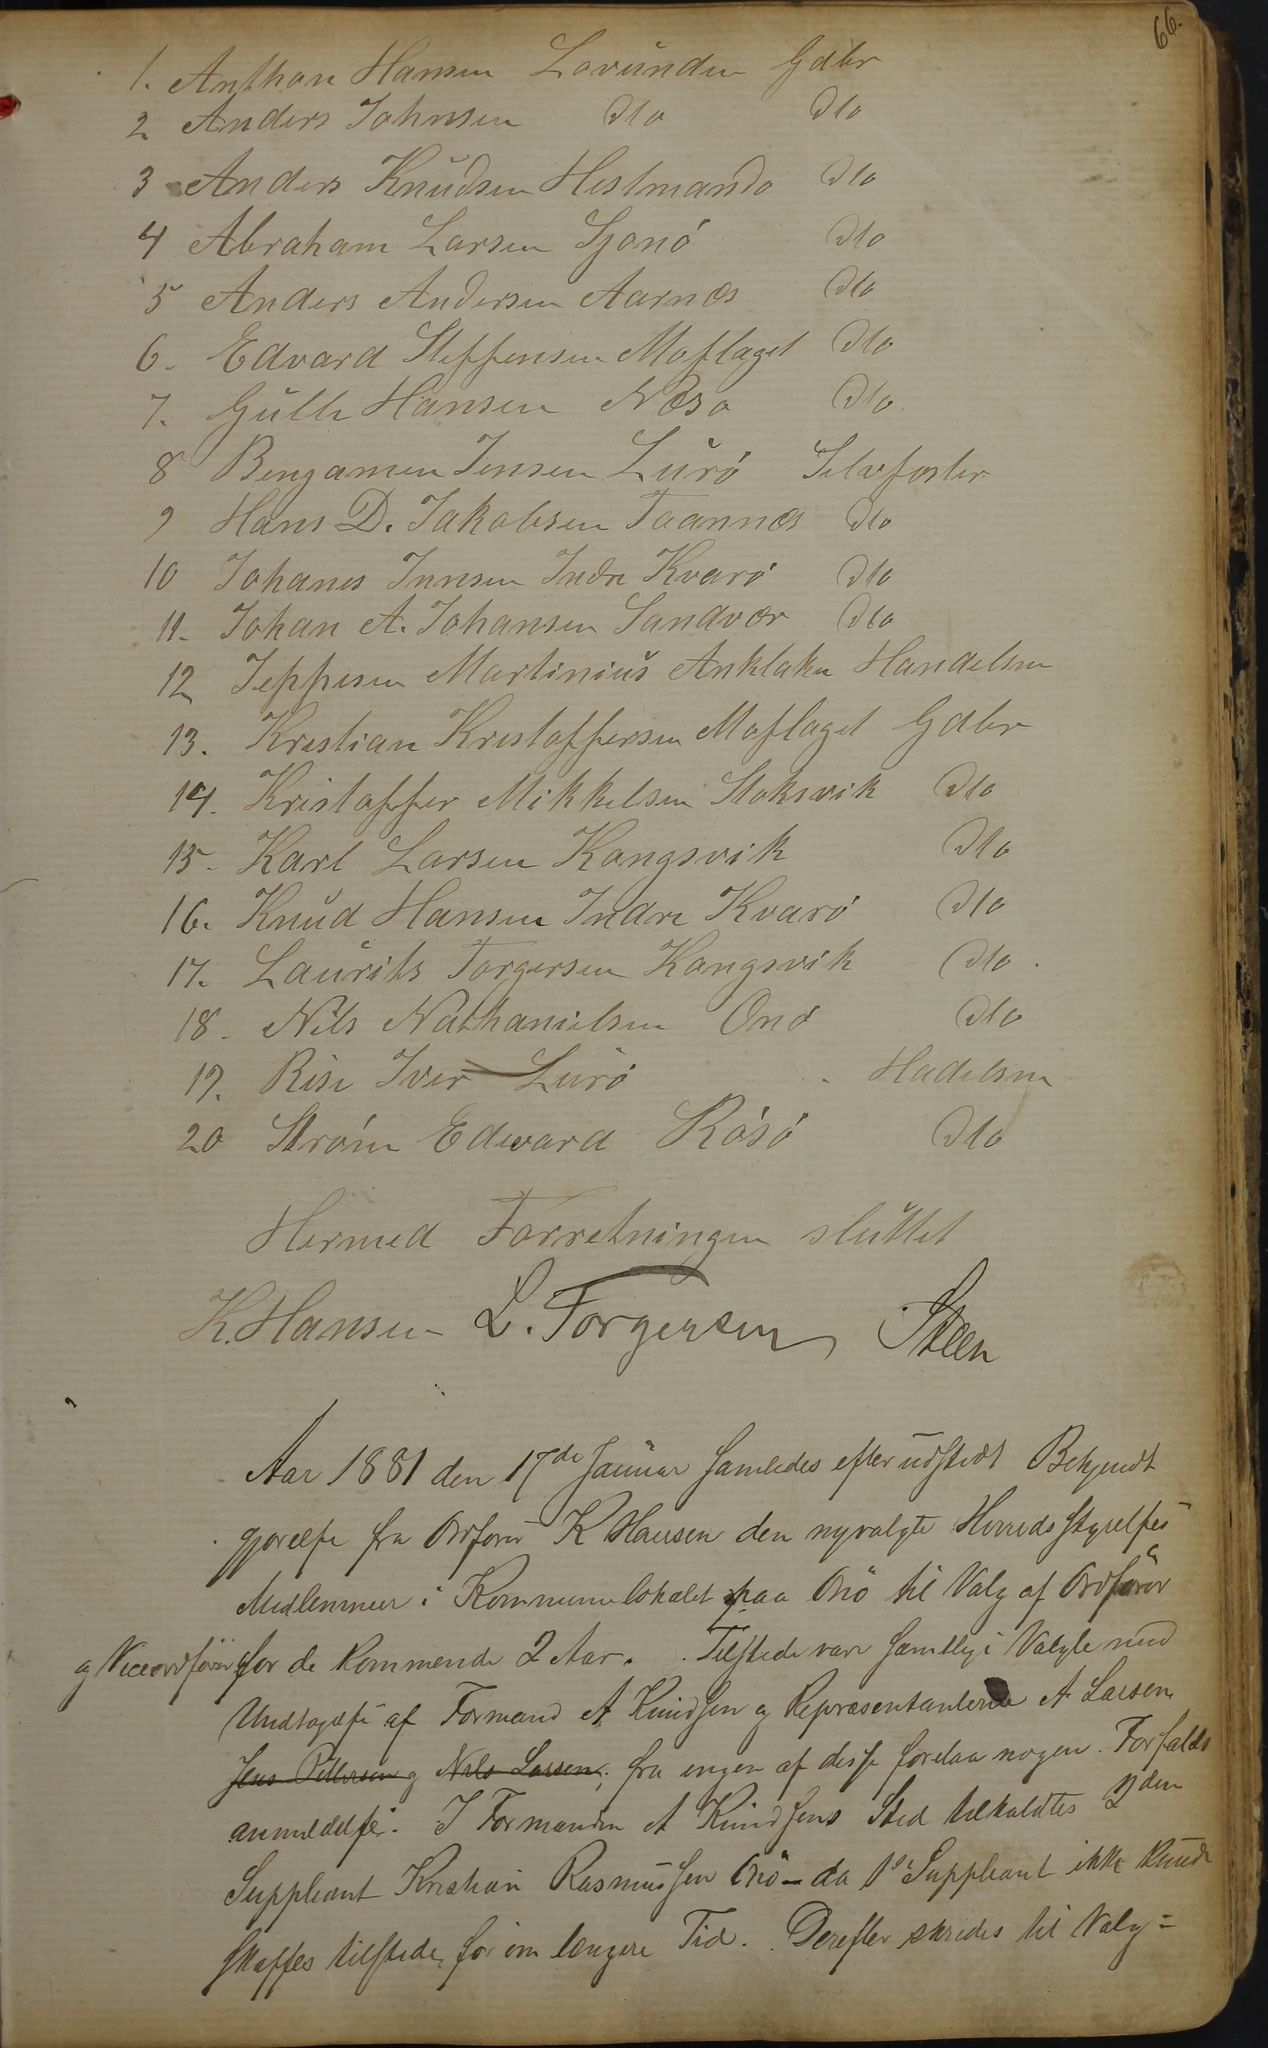 66.
1. Anthon Hansen Lovunden Gdbr
2 Anders Johnsen dto dto
3 Anders Knudsen Hestmando dto
4 Abraham Larsen Sjonö dto
5 Anders Andersen Aarnæs dto
6. Edvard Steffensen Moflaget dto
7. Gulle Hansen Næso dto
8 Bengamen Jensen Lurö Selvfoster
9 Hans D. Jakobsen Taannæs dto
10 Johanes Jensen Indre Kvarö dto
11. Johan A. Johansen Sandvær dto
12 Jeppesen Martinius Anklaken Handelsm
13. Kristian Kristoffersen Moflaget Gdbr
14. Kristoffer Mikkelsen Stoksvik dto
15. Karl Larsen Kongsvik dto
16. Knud Hansen Indre Kvarö dto
17. Laurits Torgersen Kongsvik dto.
18. Nils Nathanielsen Onö dto
19. Rise Iver Lurö Hadelsm
20 Ström Edward Rösö dto
Hermed Forretningen sluttet
K. Hansen L. Torgersen Steen
Aar 1881 den 17de Januar samledes efter udstedt Bekjendt
gjörelse fra Ordförer K Hansen den nyvalgte Herredsstyrelses
Medlemmer i Kommunelokalet paa Onö til Valg af Ordförer
og Viceordförer for de kommende 2 Aar. Tilstede vare samtlige Valgte med
Undtagelse af Formand A Knudsen og Repræsentanterne A Larsen
Jens Pettersen og Nils Larsen; fra ingen af disse forelaa nogen Forfalds
anmeldelse. I Formanden A Knudsens Sted tilkaldtes 2den
Suppleant Kristian Rasmussen Onö - da 1ste Suppleant ikke kunde
skaffes tilstede för om længere Tid. Derefter skredes til Valg=